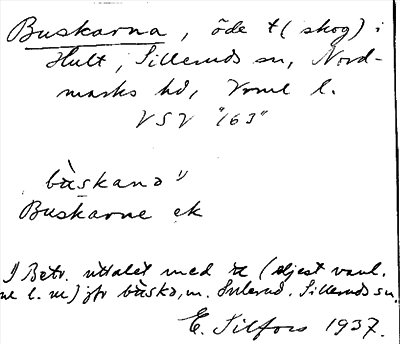 Buskarna, öde t (skog) i
Hult, Silleruds sn, Nord-
marks hd, Vrml l.
VSV "163"
bùskanə 1)
Buskarne ek
1) Betr. uttalet med
l. m) jfr bùskə, m. Sillerud. Silleruds sn.
E. Silfors 1937.